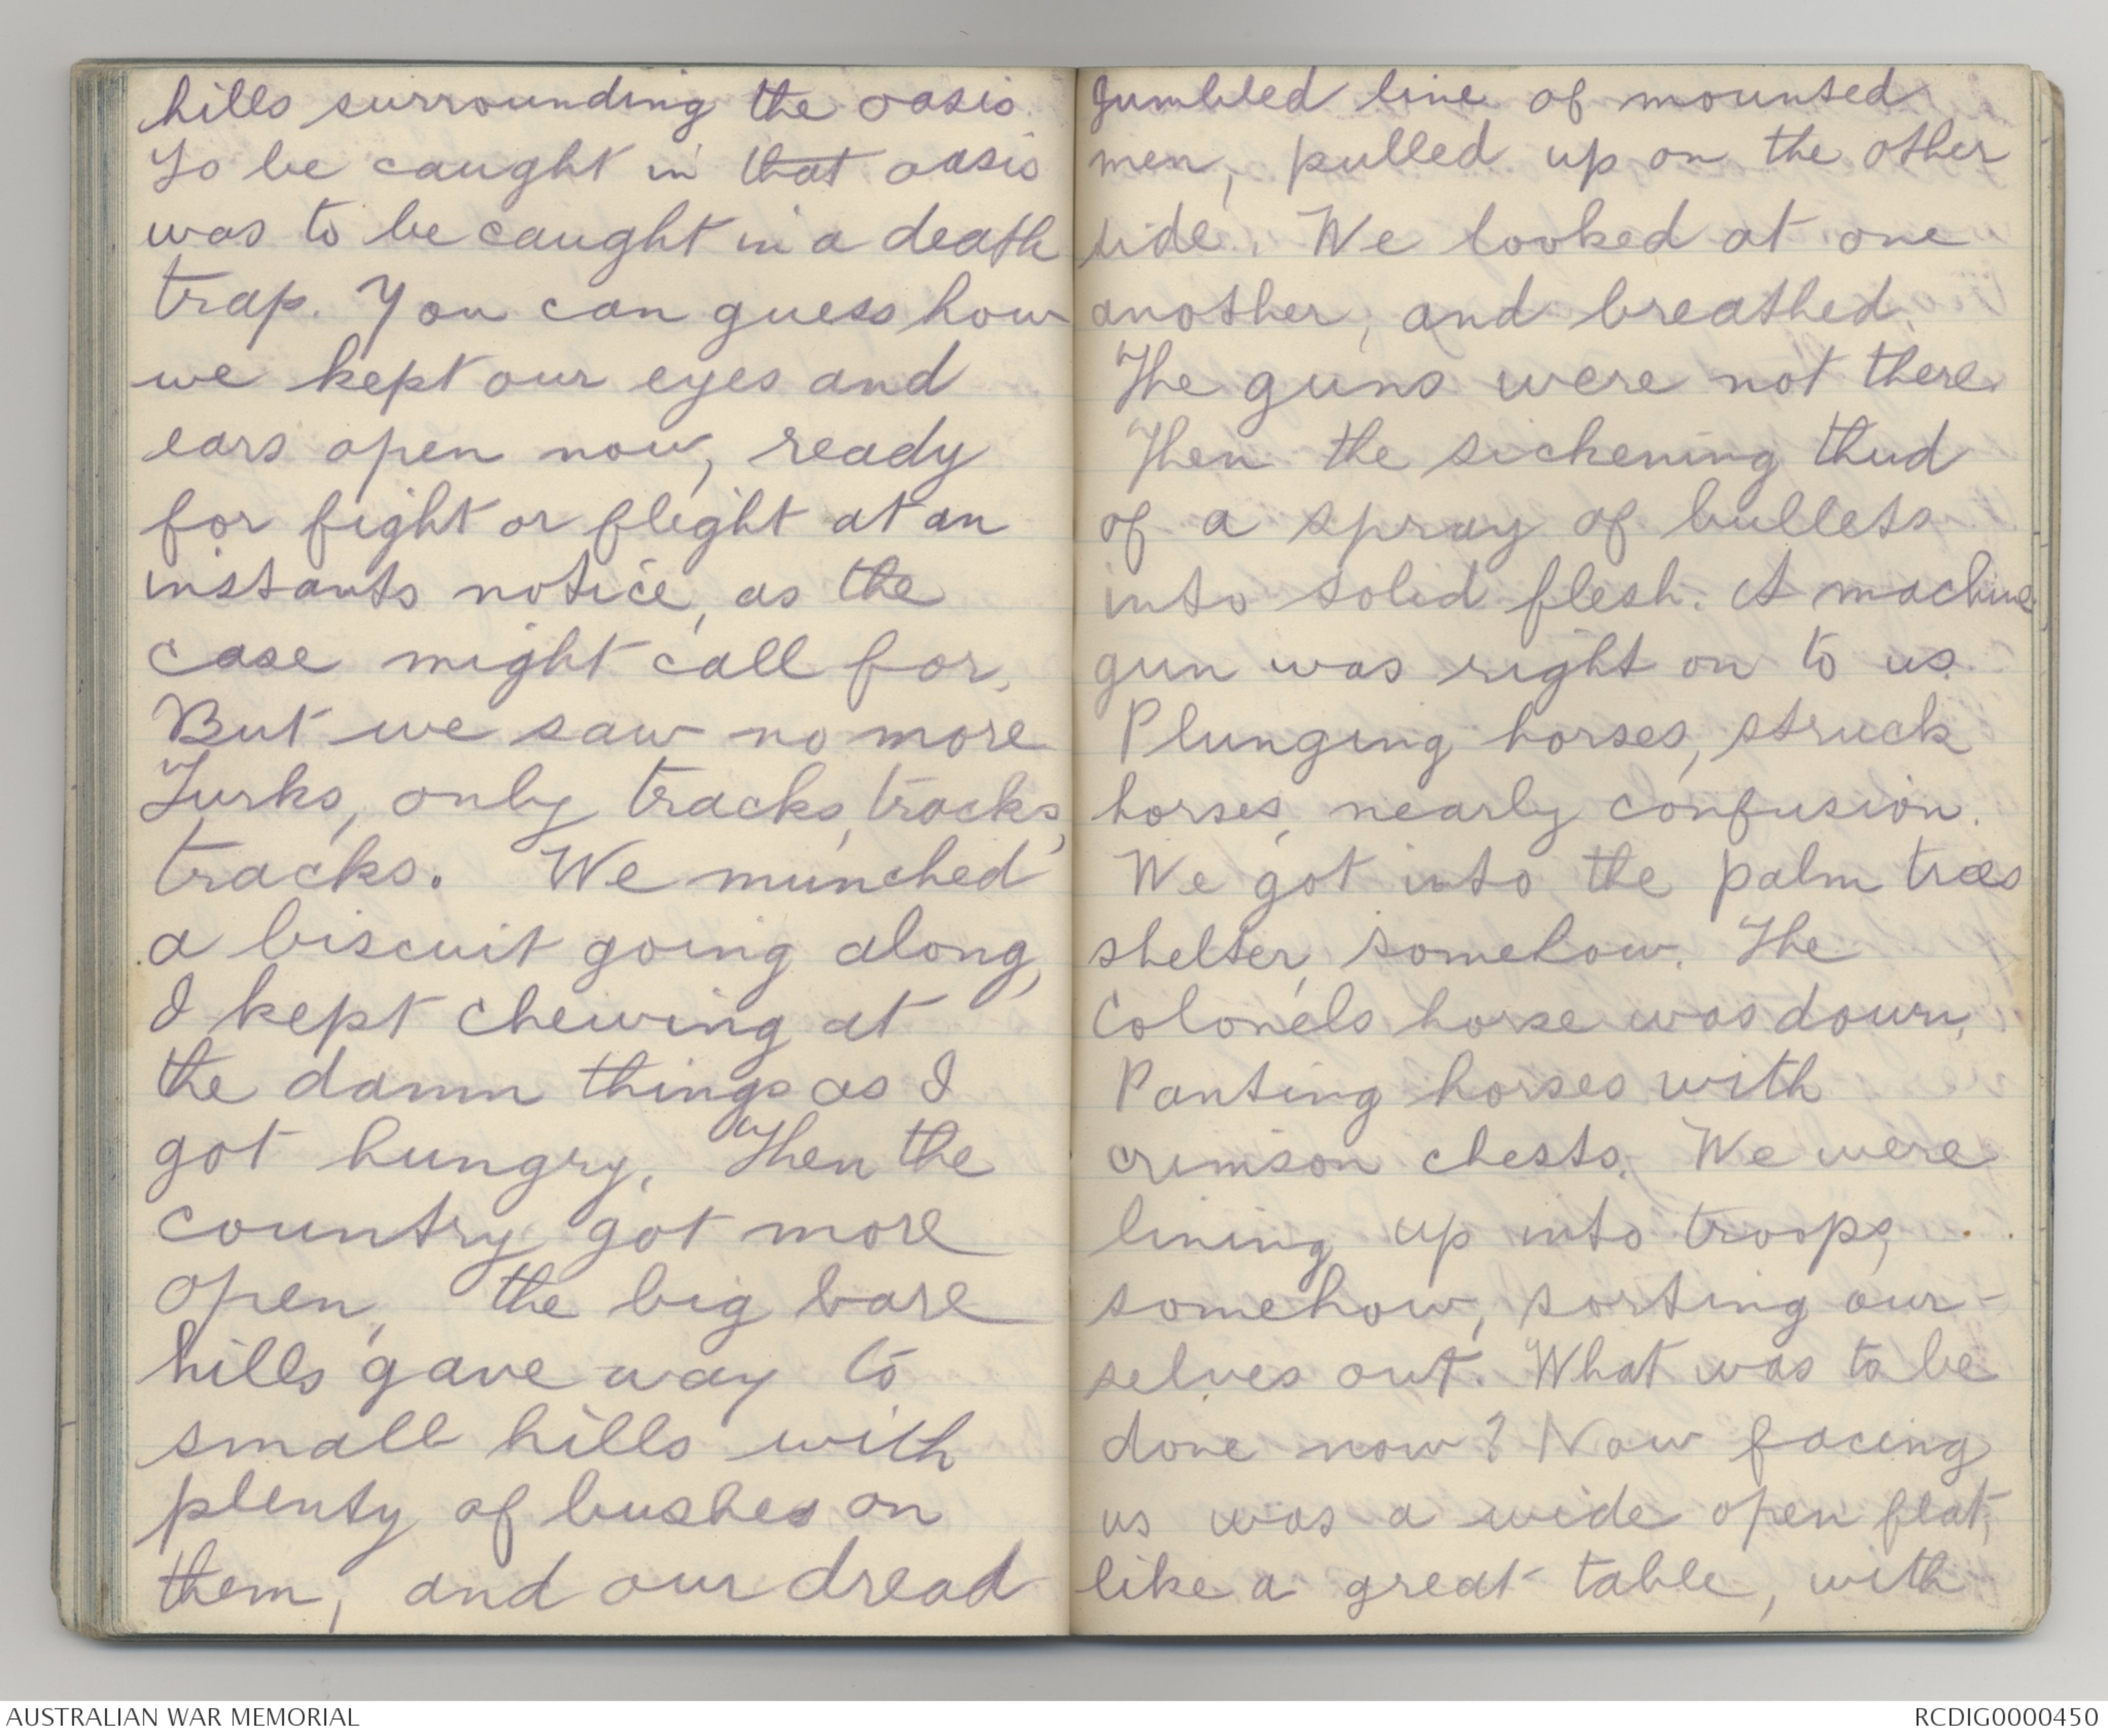 hills surrounding the oasis.
To be caught in that oasis
was to be caught in a death
trap. You can guess how
we kept our eyes and
ears open now, ready
for fight or flight at an
instants notice, as the
case might call for.
But we saw no more
Turks, only tracks, tracks,
tracks. We munched
a biscuit going along,
I kept chewing at
the damn things as I
got hungry. Then the
country got more
open, the big bare
hills gave way to
small hills with
plenty of bushes on
them, and our dread
jumbled line of mounted
men, pulled up on the other
side. We looked at one
another, and breathed.
The guns were not there.
Then the sickening thud
of a spray of bullets
into solid flesh. A machine
gun was right on to us.
Plunging horses, struck
horses, nearly confusion.
We got into the palm trees
shelter, somehow. The
Colonels horse was down.
Panting horses with
crimson chests. We were
lining up into troops,
somehow, sorting our-
selves out. What was to be
done now? Now facing
us was a wide open flat,
like a great table, with
AUSTRALIAN WAR MEMORIAL
RCDIG0000450